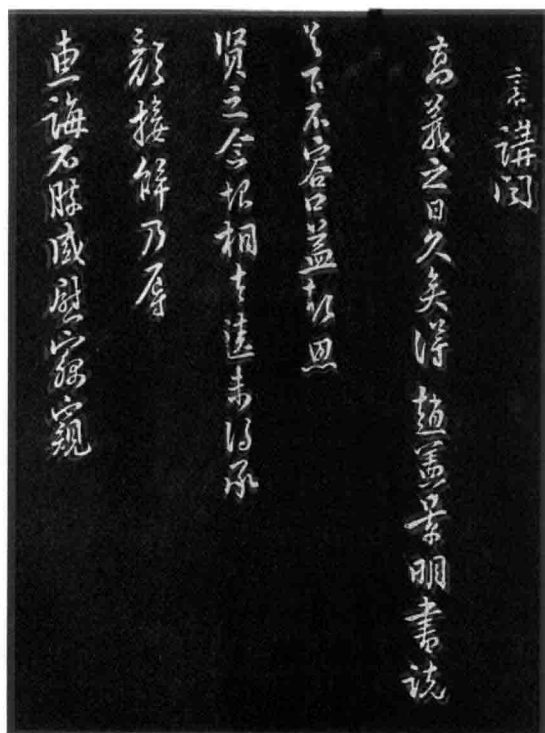 言講閱
高義之日久矣得趙孟景明書說
足下不容口益起思
賢之念恨相去遠未得承
顏接辭乃辱
惠誨不勝感慰竊窺